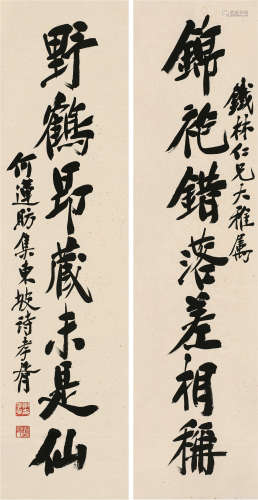 鐵林仁兄大雅屬
錦袍錯落差相稱
野鶴昂藏未是仙
何蓮昉集東坡詩孝胥